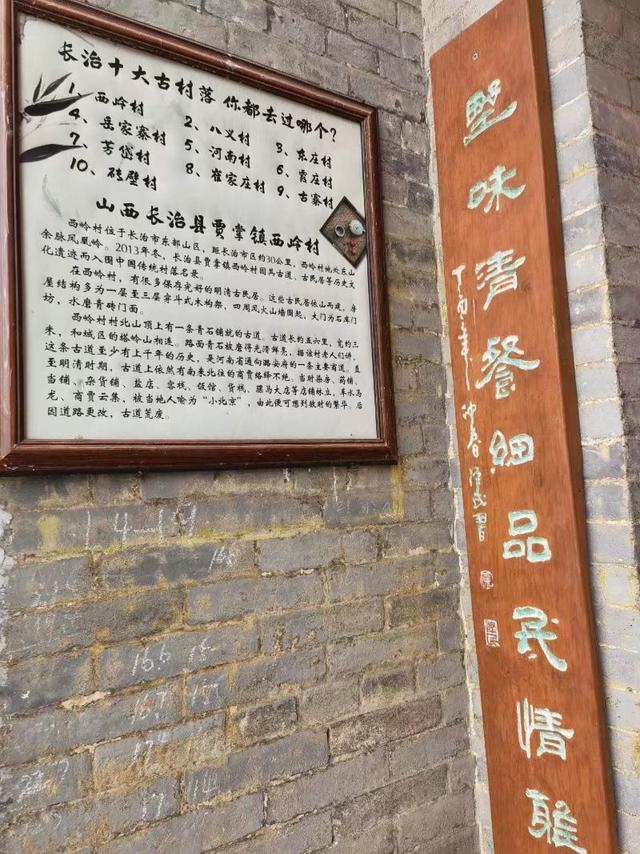 长治十大古村落 你都去过哪个？
1、西岭村 2、八义村 3、东庄村
4、岳家寨村 5、河南村 6、霞庄村
7、芳岱村 8、崔家庄村 9、古寨村
10、砖壁村
山西长治县贾掌镇西岭村
西岭村位于长治市东部山区，距长治市区约30公里，西岭村地处东山
余脉凤凰岭。2013年冬，长治县贾掌镇西岭村因其古道、古民居等历史文
化遗迹而入围中国传统村落名录。
在西岭村，有很多保存完好的明清古民居。这些古民居依山而建，房
屋结构多为一层至三层穿斗式木构架，四周风火山墙围起，大门为石库门
坊，水磨青砖门面。
西岭村村北山顶上有一条青石铺就的古道。古道长约五六里，宽约三
米，和城区的塔岭山相连。路面青石被磨得光滑鲜亮，据该村老人们讲，
这条古道至少有上千年的历史，是河南省通向潞安府的一条主要商道。直
至明清时期，古道上依然有南来北往的商贾络绎不绝。当时染房、药铺、
当铺、杂货铺、盐店、客栈、饭馆、货栈、骡马大店等店铺林立，车水马
龙、商贾云集，被当地人喻为“小北京”，由此便可想到彼时的繁华。后
因道路更改，古道荒废。
味清餐细品民情雅
丁酉年
14-19